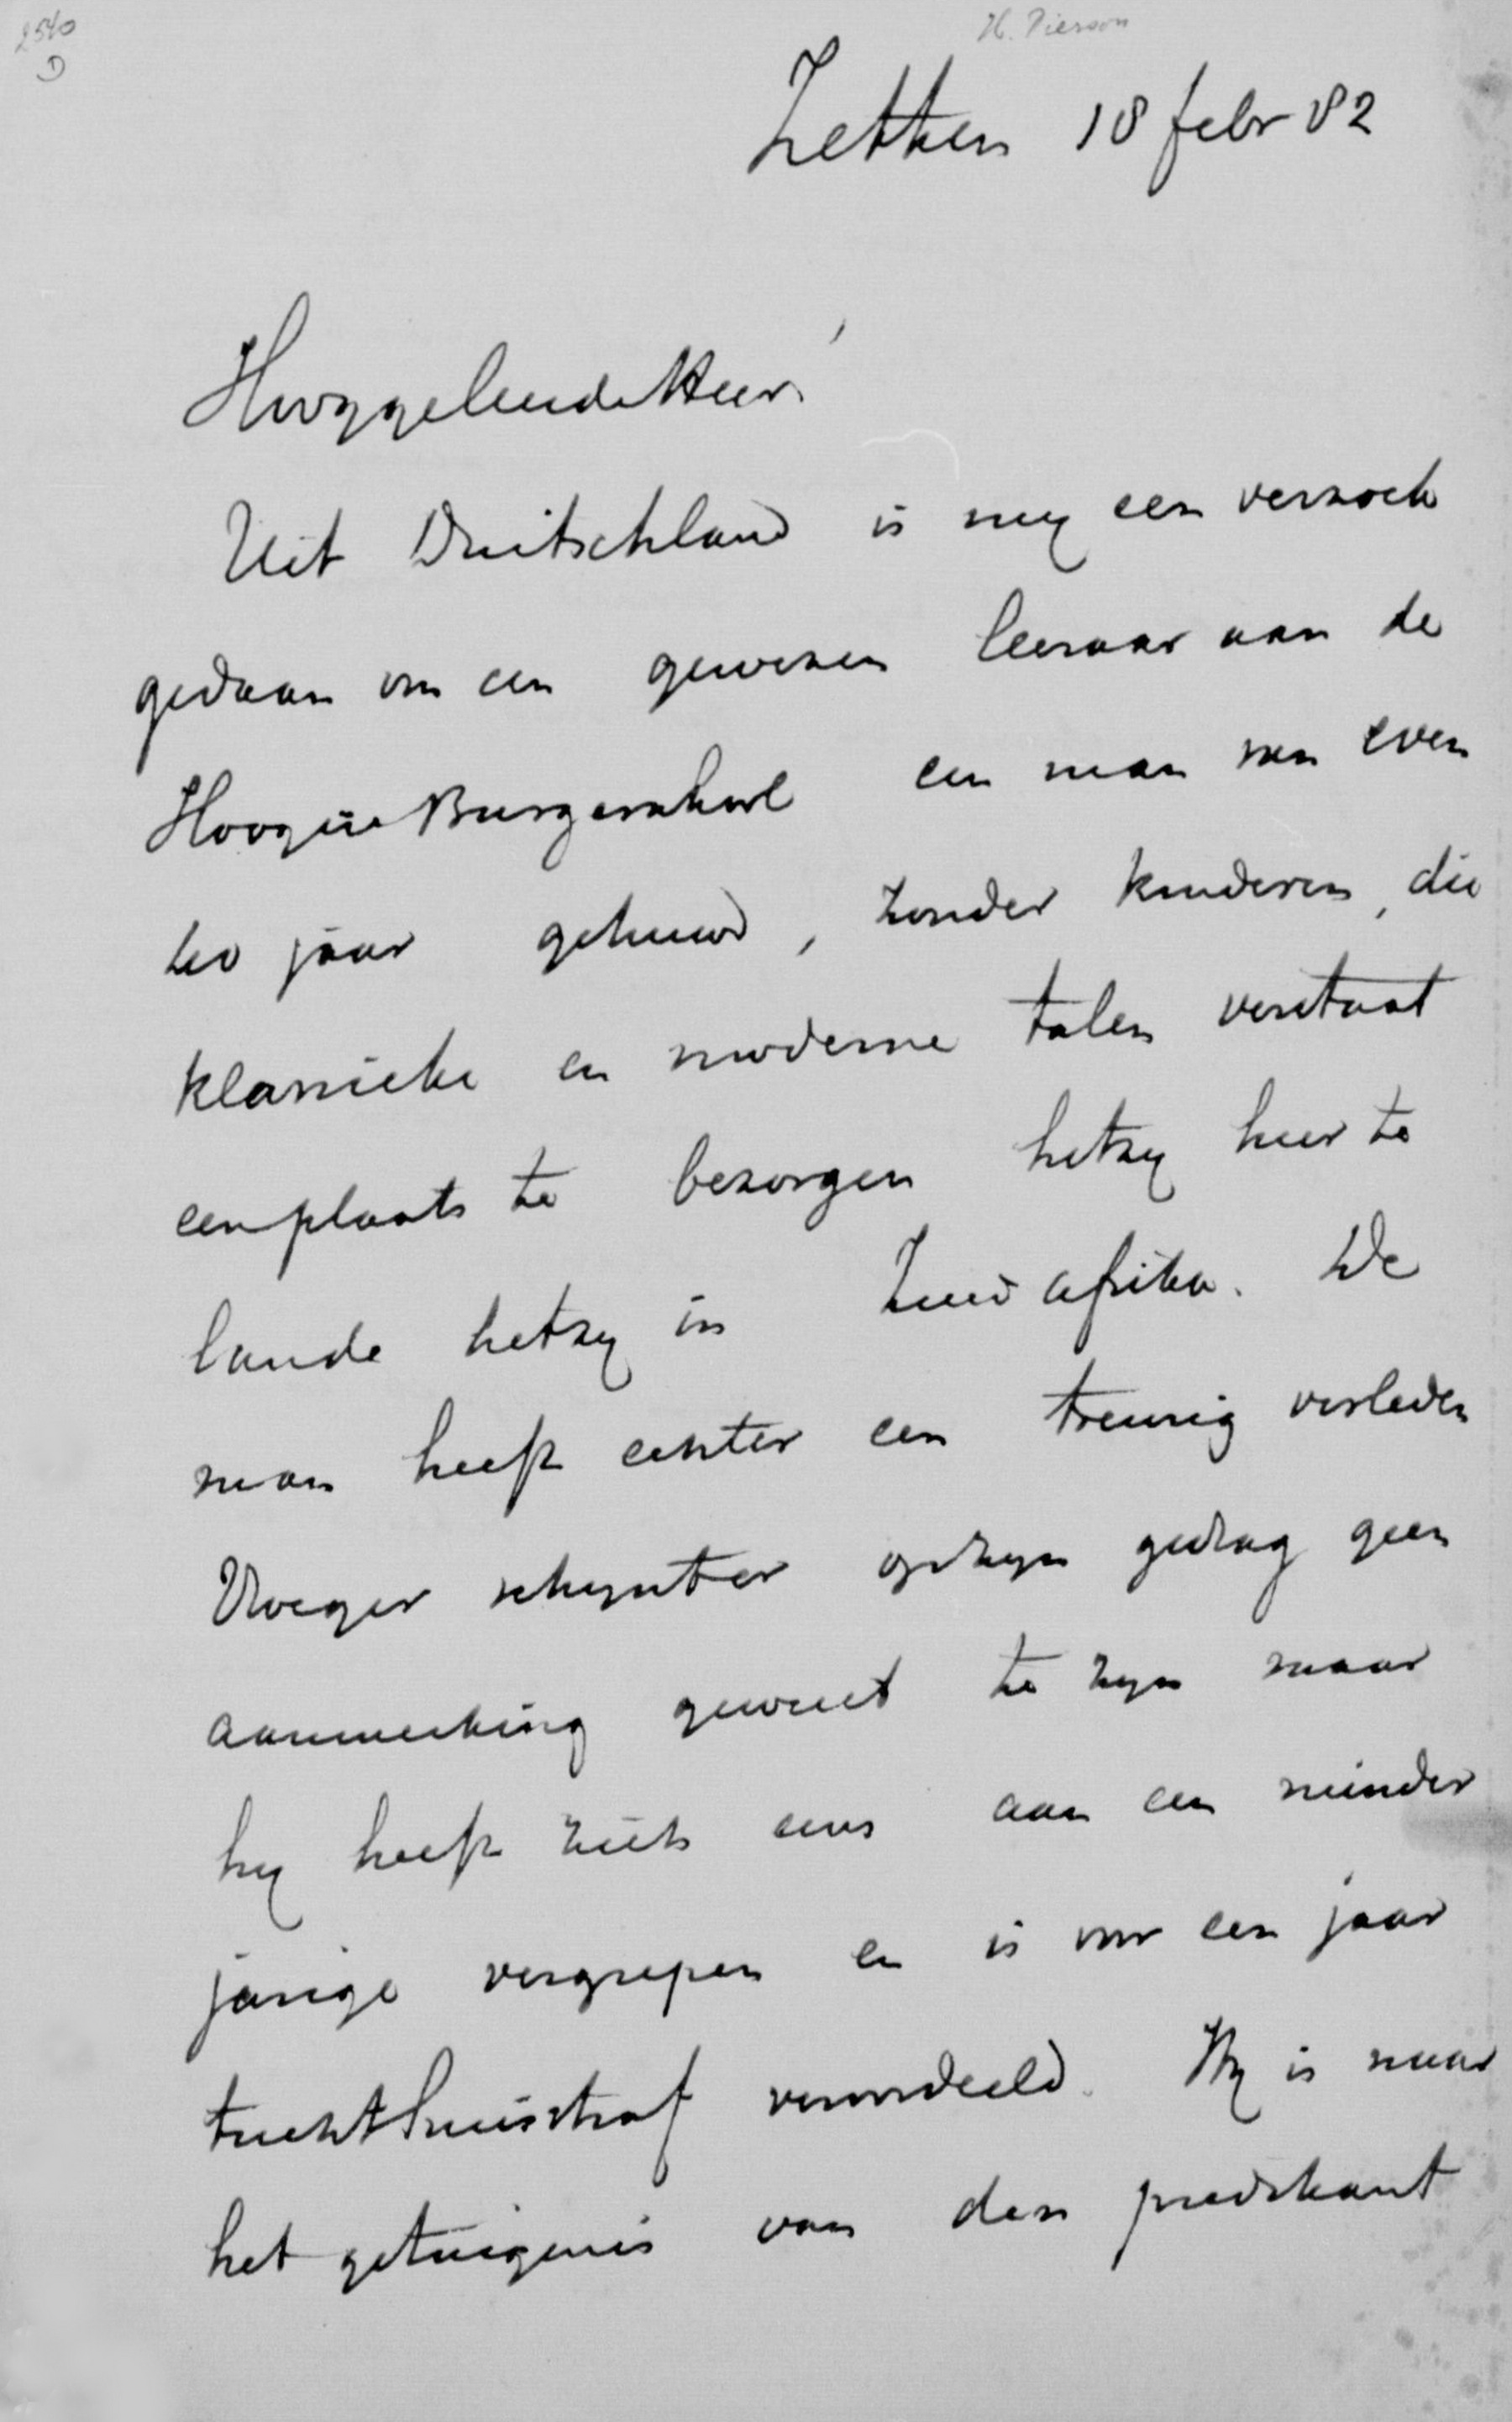 2540
D
H. Pierson
Zetten 18 febr 82
Hooggeleerde Heer,
Uit Duitschland is my een verzoek
gedaan om een gewezen leeraar aan de
Hoogere Burgerschool een man van even
jaar gehuwd, zonder kinderen, die
klassieke en moderne talen verstaat
een plaats te bezorgen hetzy hier te
lande hetzy in Zuid afrika. De
man heeft echter een treurig verleden
Vroeger schynt er op zyn gedrag geen
aanmerking geweest te zyn maar
hy heeft zich eens aan een minder
jarige vergrepen en is voor een jaar
tuchthuisstraf veroordeeld. Hy is naar
het getuigenis van den predikant